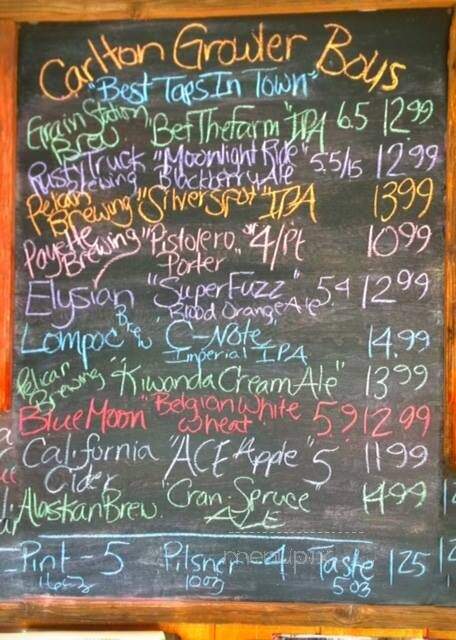 Carlton Growler Boys
"Best Taps In Town"
Grain Station Brew "Bet The Farm" IPA 6.5 12.99
Rusty Truck Brewing "Moonlight Ride" Blackberry Ale 5.5/15 12.99
Pelican Brewing "Silverspot" IPA 13.99
Payette Brewing "Pistolero" Porter 4/Pt 10.99
Elysian "Super Fuzz" Blood Orange Ale 5.4 12.99
Lompoc Brew "C-Note" Imperial IPA 14.99
Pelican Brewing "Kiwanda Cream Ale" 13.99
Blue Moon "Belgian White" Wheat 5.9 12.99
California Cider "ACE Apple" 5 11.99
Alaskan Brew. "Cran-Spruce" ALE 14.99
Pint - 5 Pilsner - 4 Taste 1.25
16oz 10oz 5oz